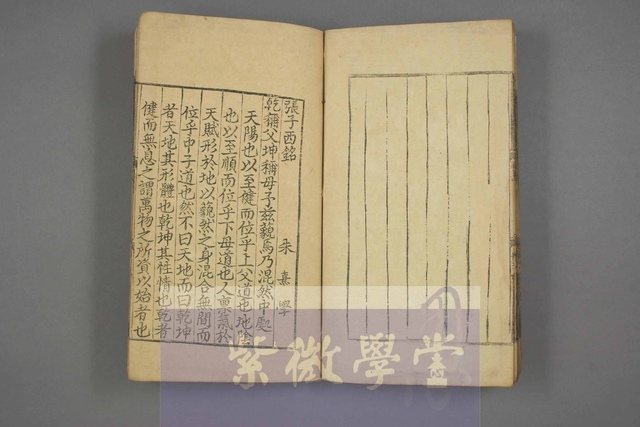 張子西銘
朱熹學
乾稱父坤稱母子玆藐焉乃混然中處
天陽也以至健而位乎上父道也地陰
也以至順而位乎下母道也人禀氣於
天賦形於地以藐然之身混合無間而
位乎中子道也然不曰天地而曰乾坤
者天地其形體也乾坤其性情也乾者
健而無息之謂萬物之所資以始者也
紫微學堂